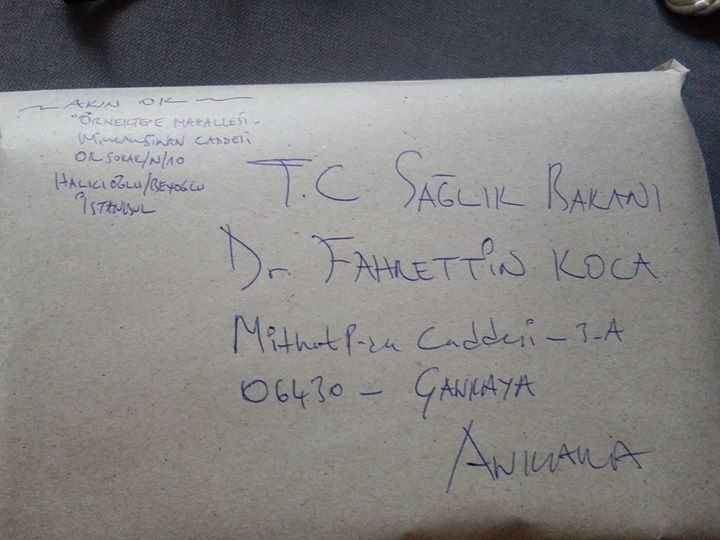 AKIN OK
ÖRNEKTEPE MAHALLESİ
MİMARSİNAN CADDESİ
OK SOKAK/N/10
HALICIOĞLU/BEYOĞLU
İSTANBUL
T.C SAĞLIK BAKANI
Dr FAHRETTİN KOCA
Caddesi - 3-A
06430 - ÇANKAYA
ANKARA